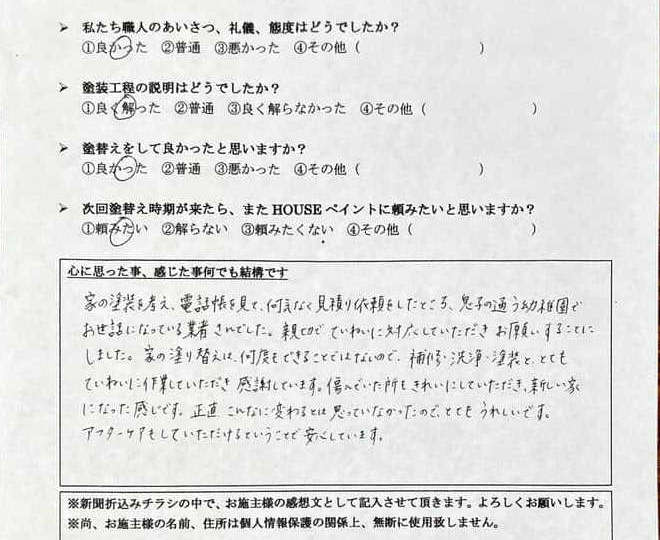 ➤ 私たち職人のあいさつ、礼儀、態度はどうでしたか？
①良かった ②普通 ③悪かった ④その他（ ）
➤ 塗装工程の説明はどうでしたか？
①良く解った ②普通 ③良く解らなかった ④その他（ ）
➤ 塗替えをして良かったと思いますか？
①良かった ②普通 ③悪かった ④その他（ ）
➤ 次回塗替え時期が来たら、また HOUSE ペイントに頼みたいと思いますか？
①頼みたい ②解らない ③頼みたくない ④その他（ ）
心に思った事、感じた事何でも結構です
家の塗装を考え、電話帳を見て、何気なく見積り依頼をしたところ、息子の通う幼稚園で
お世話になっている業者さんでした。親切で ていねいに対応していただき お願いすることに
しました。家の塗り替えは、何度もできることではないので、補修・洗浄・塗装と、とても
ていねいに作業していただき 感謝しています。傷んでいた所もきれいにしていただき、新しい家
になった感じです。正直 こんなに変わるとは 思っていなかったので、とても うれしいです。
アフターケアもしていただけるということで 安心しています。
※新聞折込みチラシの中で、お施主様の感想文として記入させて頂きます。よろしくお願いします。
※尚、お施主様の名前、住所は個人情報保護の関係上、無断に使用致しません。